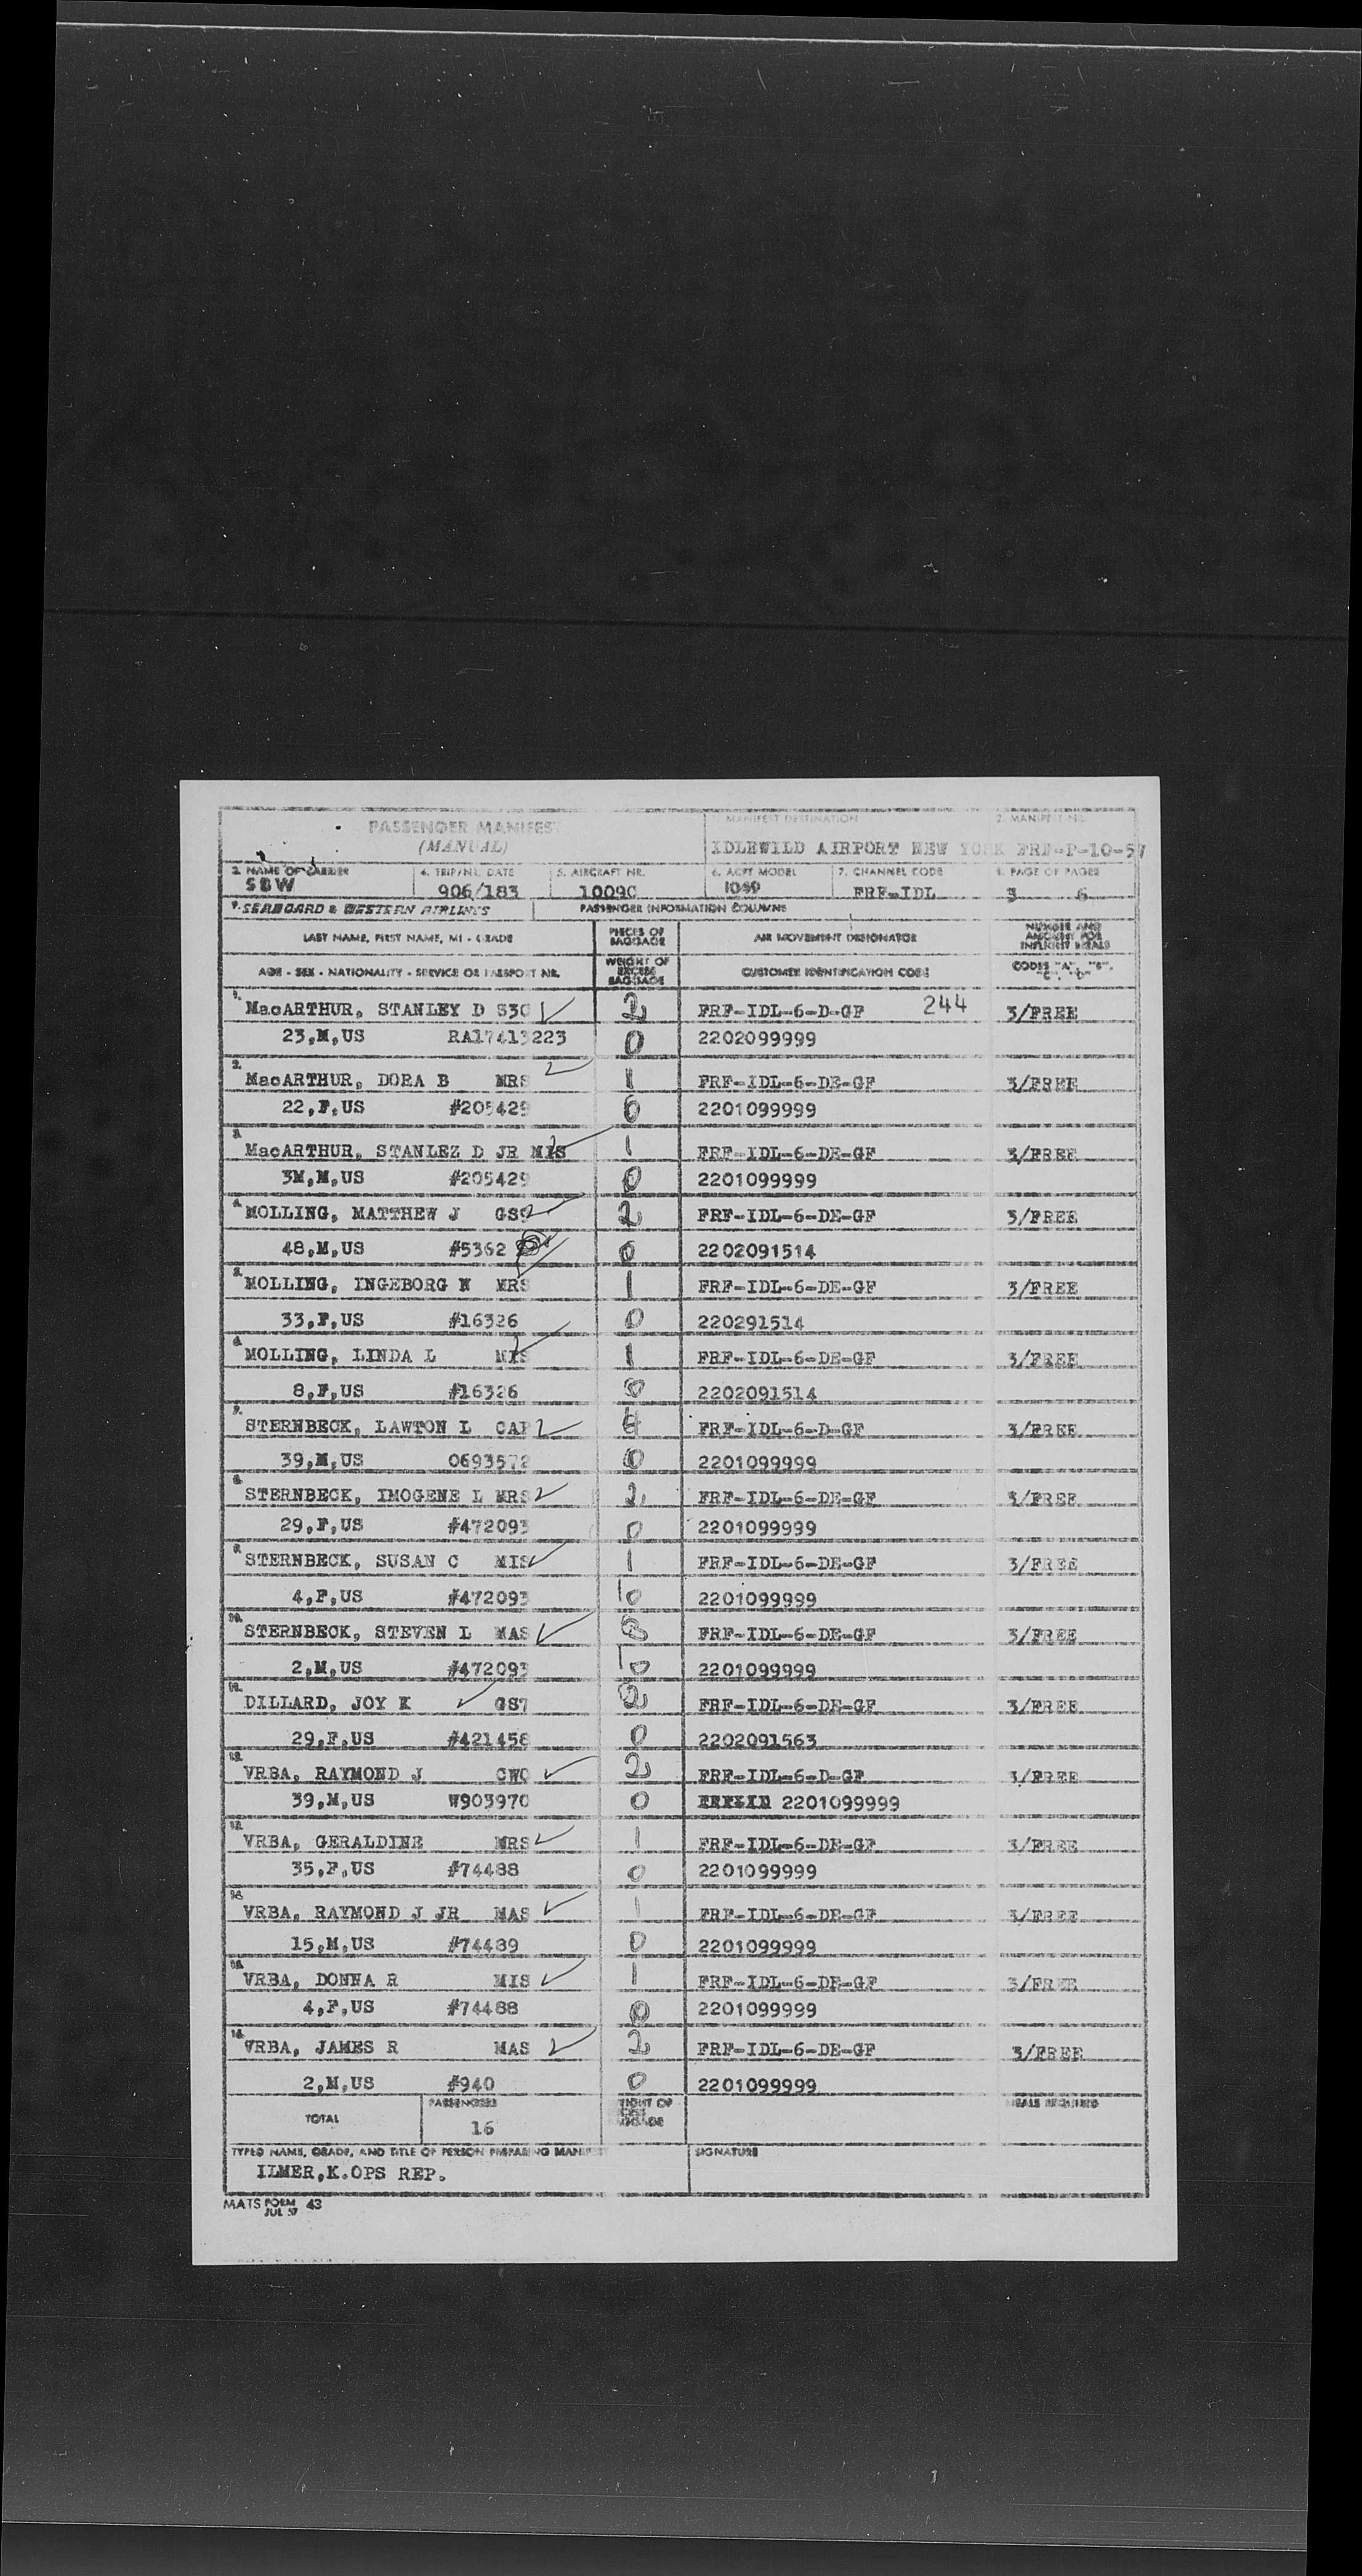 PASSENGER MANIFEST
(MANUAL)
MANIFEST DESTINATION
IDLEWILD AIRPORT NEW YORK
2. MANIFEST NR.
FRF-P-10-57
3. NAME OF CARRIER
SBW
4. TRIP/NR. DATE
906/183
5. AIRCRAFT NR.
1009C
6. ACFT MODEL
1049
7. CHANNEL CODE
FRF-IDL
8. PAGE OF PAGES
3 6
9. SEABOARD & WESTERN AIRLINES
PASSENGER INFORMATION COLUMNS
LAST NAME, FIRST NAME, MI - GRADE
PIECES OF BAGGAGE
AIR MOVEMENT DESIGNATOR
NUMBER AND AMOUNT FOR INFLIGHT MEALS
AGE - SEX - NATIONALITY - SERVICE OR PASSPORT NR.
WEIGHT OF EXCESS BAGGAGE
CUSTOMER IDENTIFICATION CODE
CODES "A", "B", "C", "D"
1. MacARTHUR, STANLEY D S3C 2 FRF-IDL-6-D-GF 244 3/FREE
23,M,US RA17413223 0 2202099999
2. MacARTHUR, DORA B MRS 1 FRF-IDL-6-DE-GF 3/FREE
22,F,US #205429 0 2201099999
3. MacARTHUR, STANLEZ D JR MIS 1 FRF-IDL-6-DE-GF 3/FREE
3M,M,US #205429 0 2201099999
4. MOLLING, MATTHEW J GS9 2 FRF-IDL-6-DE-GF 3/FREE
48,M,US #5362 0 2202091514
5. MOLLING, INGEBORG W MRS 1 FRF-IDL-6-DE-GF 3/FREE
33,F,US #16326 0 220291514
6. MOLLING, LINDA L MIS 1 FRF-IDL-6-DE-GF 3/FREE
8,F,US #16326 0 2202091514
7. STERNBECK, LAWTON L CAP 4 FRF-IDL-6-D-GF 3/FREE
39,M,US 0693572 0 2201099999
8. STERNBECK, IMOGENE L MRS 2 FRF-IDL-6-DE-GF 3/FREE
29,F,US #472093 0 2201099999
9. STERNBECK, SUSAN C MIS 1 FRF-IDL-6-DE-GF 3/FREE
4,F,US #472093 0 2201099999
10. STERNBECK, STEVEN L MAS FRF-IDL-6-DE-GF 3/FREE
2,M,US #472093 0 2201099999
11. DILLARD, JOY K GS7 2 FRF-IDL-6-DE-GF 3/FREE
29,F,US #421458 0 2202091563
12. VRBA, RAYMOND J CWO 2 FRF-IDL-6-D-GF 3/FREE
39,M,US W903970 0 2201099999
13. VRBA, GERALDINE MRS 1 FRF-IDL-6-DE-GF 3/FREE
35,F,US #74488 0 2201099999
14. VRBA, RAYMOND J JR MAS 1 FRF-IDL-6-DE-GF 3/FREE
15,M,US #74489 0 2201099999
15. VRBA, DONNA R MIS 1 FRF-IDL-6-DE-GF 3/FREE
4,F,US #74488 0 2201099999
16. VRBA, JAMES R MAS 2 FRF-IDL-6-DE-GF 3/FREE
2,M,US #940 0 2201099999
TOTAL
PASSENGERS
16
WEIGHT OF EXCESS BAGGAGE
MEALS REQUIRED
TYPED NAME, GRADE, AND TITLE OF PERSON PREPARING MANIFEST
SIGNATURE
ILMER,K.OPS REP.
MATS FORM JUL 57 43